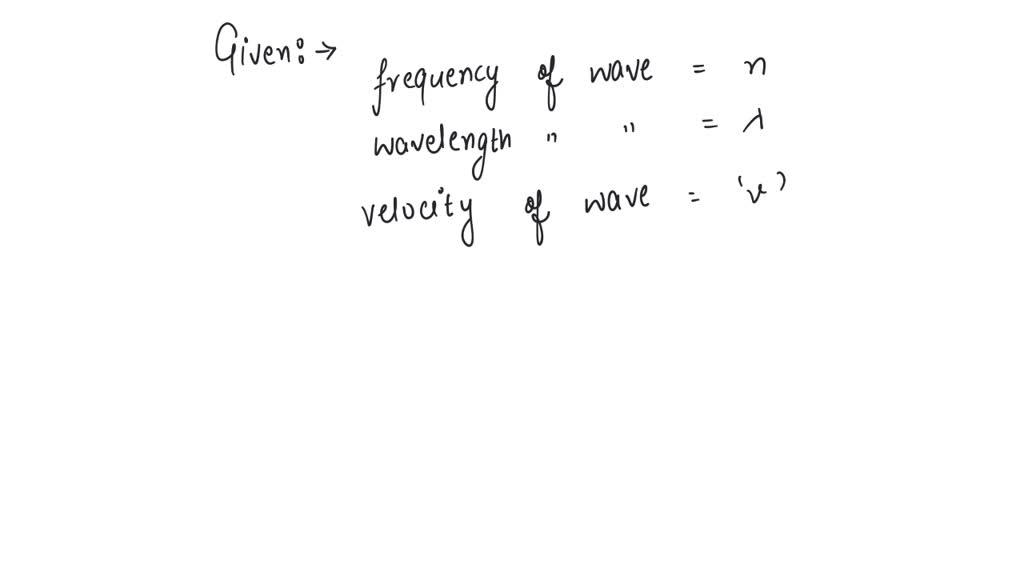 Given:→
frequency of wave = n
wavelength " " = λ
velocity of wave = 'v'